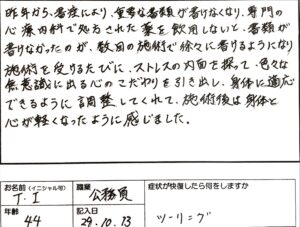 昨年から、書痙により、重要な書類が書けなくなり、専門の
心療内科で処方された薬を飲用しないと、書類が
書けなかったのが、数回の施術で徐々に書けるようになり
施術を受けるたびに、ストレスの内面を探って、色々な
無意識に出る心のこだわりを引き出し、身体に適応
できるように調整してくれて、施術後は身体と
心が軽くなったように感じました。
お名前(イニシャル可) 職業 症状が快復したら何をしますか
T.I 公務員
年齢 記入日 ツーリング
44 29.10.13